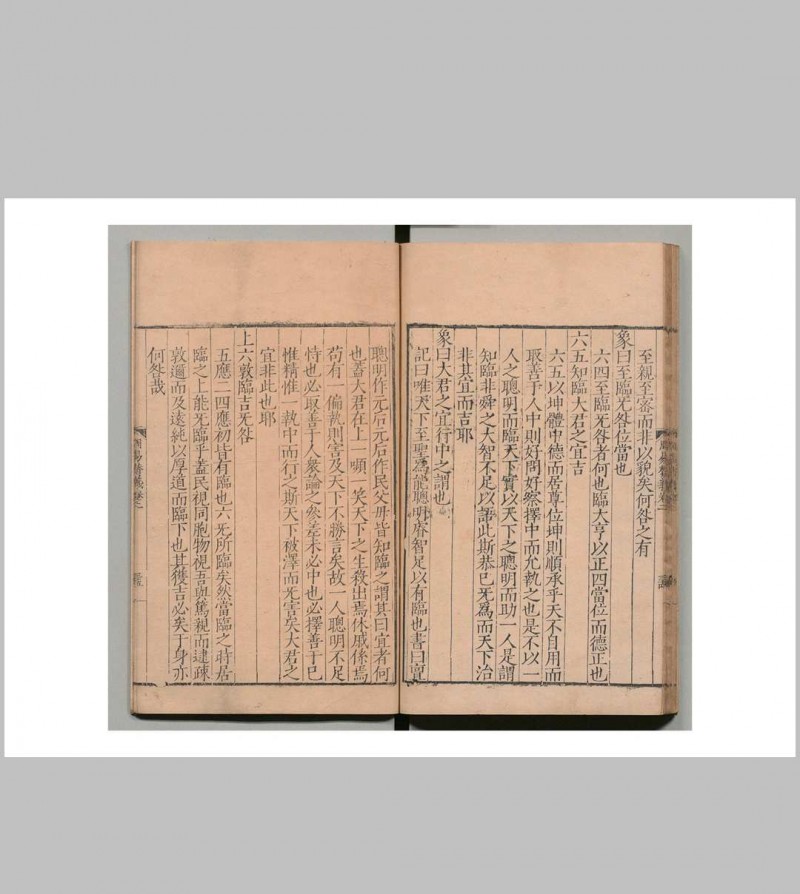 至親至密而非以貌矣何咎之有
象曰至臨无咎位當也
六四至臨无咎者何也臨大亨以正四當位而德正也
六五知臨大君之宜吉
六五以坤體中德而居尊位坤則順承乎天不自用而
取善于人中則好問好察擇中而允執之也是不以一
人之聰明而臨天下實以天下之聰明而助一人是謂
知臨非舜之大智不足以語此斯恭已无為而天下治
非其宜而吉耶
象曰大君之宜行中之謂也
記曰唯天下至聖為能聰明睿智足以有臨也書曰亶
聰明作元后元后作民父母皆知臨之謂其曰宜者何
也蓋大君在上一嚬一笑天下之生殺出焉休戚係焉
苟有一偏執則害及天下不勝言矣故一人聰明不足
恃也必取善于人衆論之參差未必中也必擇善于已
惟精惟一執中而行之斯天下被澤而无害矣大君之
宜非此也耶
上六敦臨吉无咎
五應二四應初皆有臨也六无所臨矣然當臨之時居
臨之上能无臨乎蓋民視同胞物視吾與篤親而逮疎
敦邇而及遠純以厚道而臨下也其獲吉必矣于身亦
何咎哉